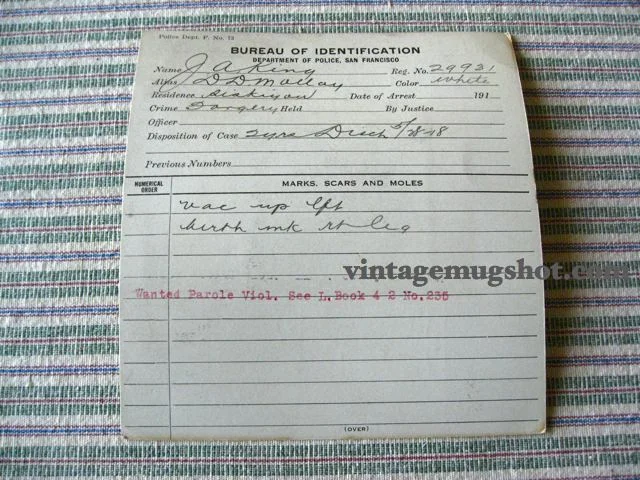 Police Dept. F. No. 13
BUREAU OF IDENTIFICATION
DEPARTMENT OF POLICE, SAN FRANCISCO
Name J A King Reg. No. 29931
Alias D D Mulloy Color white
Residence Siskiyou Date of Arrest 191
Crime Forgery Held By Justice
Officer
Disposition of Case 2yrs Disch 5/28-18
Previous Numbers
NUMERICAL ORDER MARKS, SCARS AND MOLES
vac up lft
birth mk rt leg
vintagemugshot.com
Wanted Parole Viol. See L. Book 4 2 No. 235
(OVER)